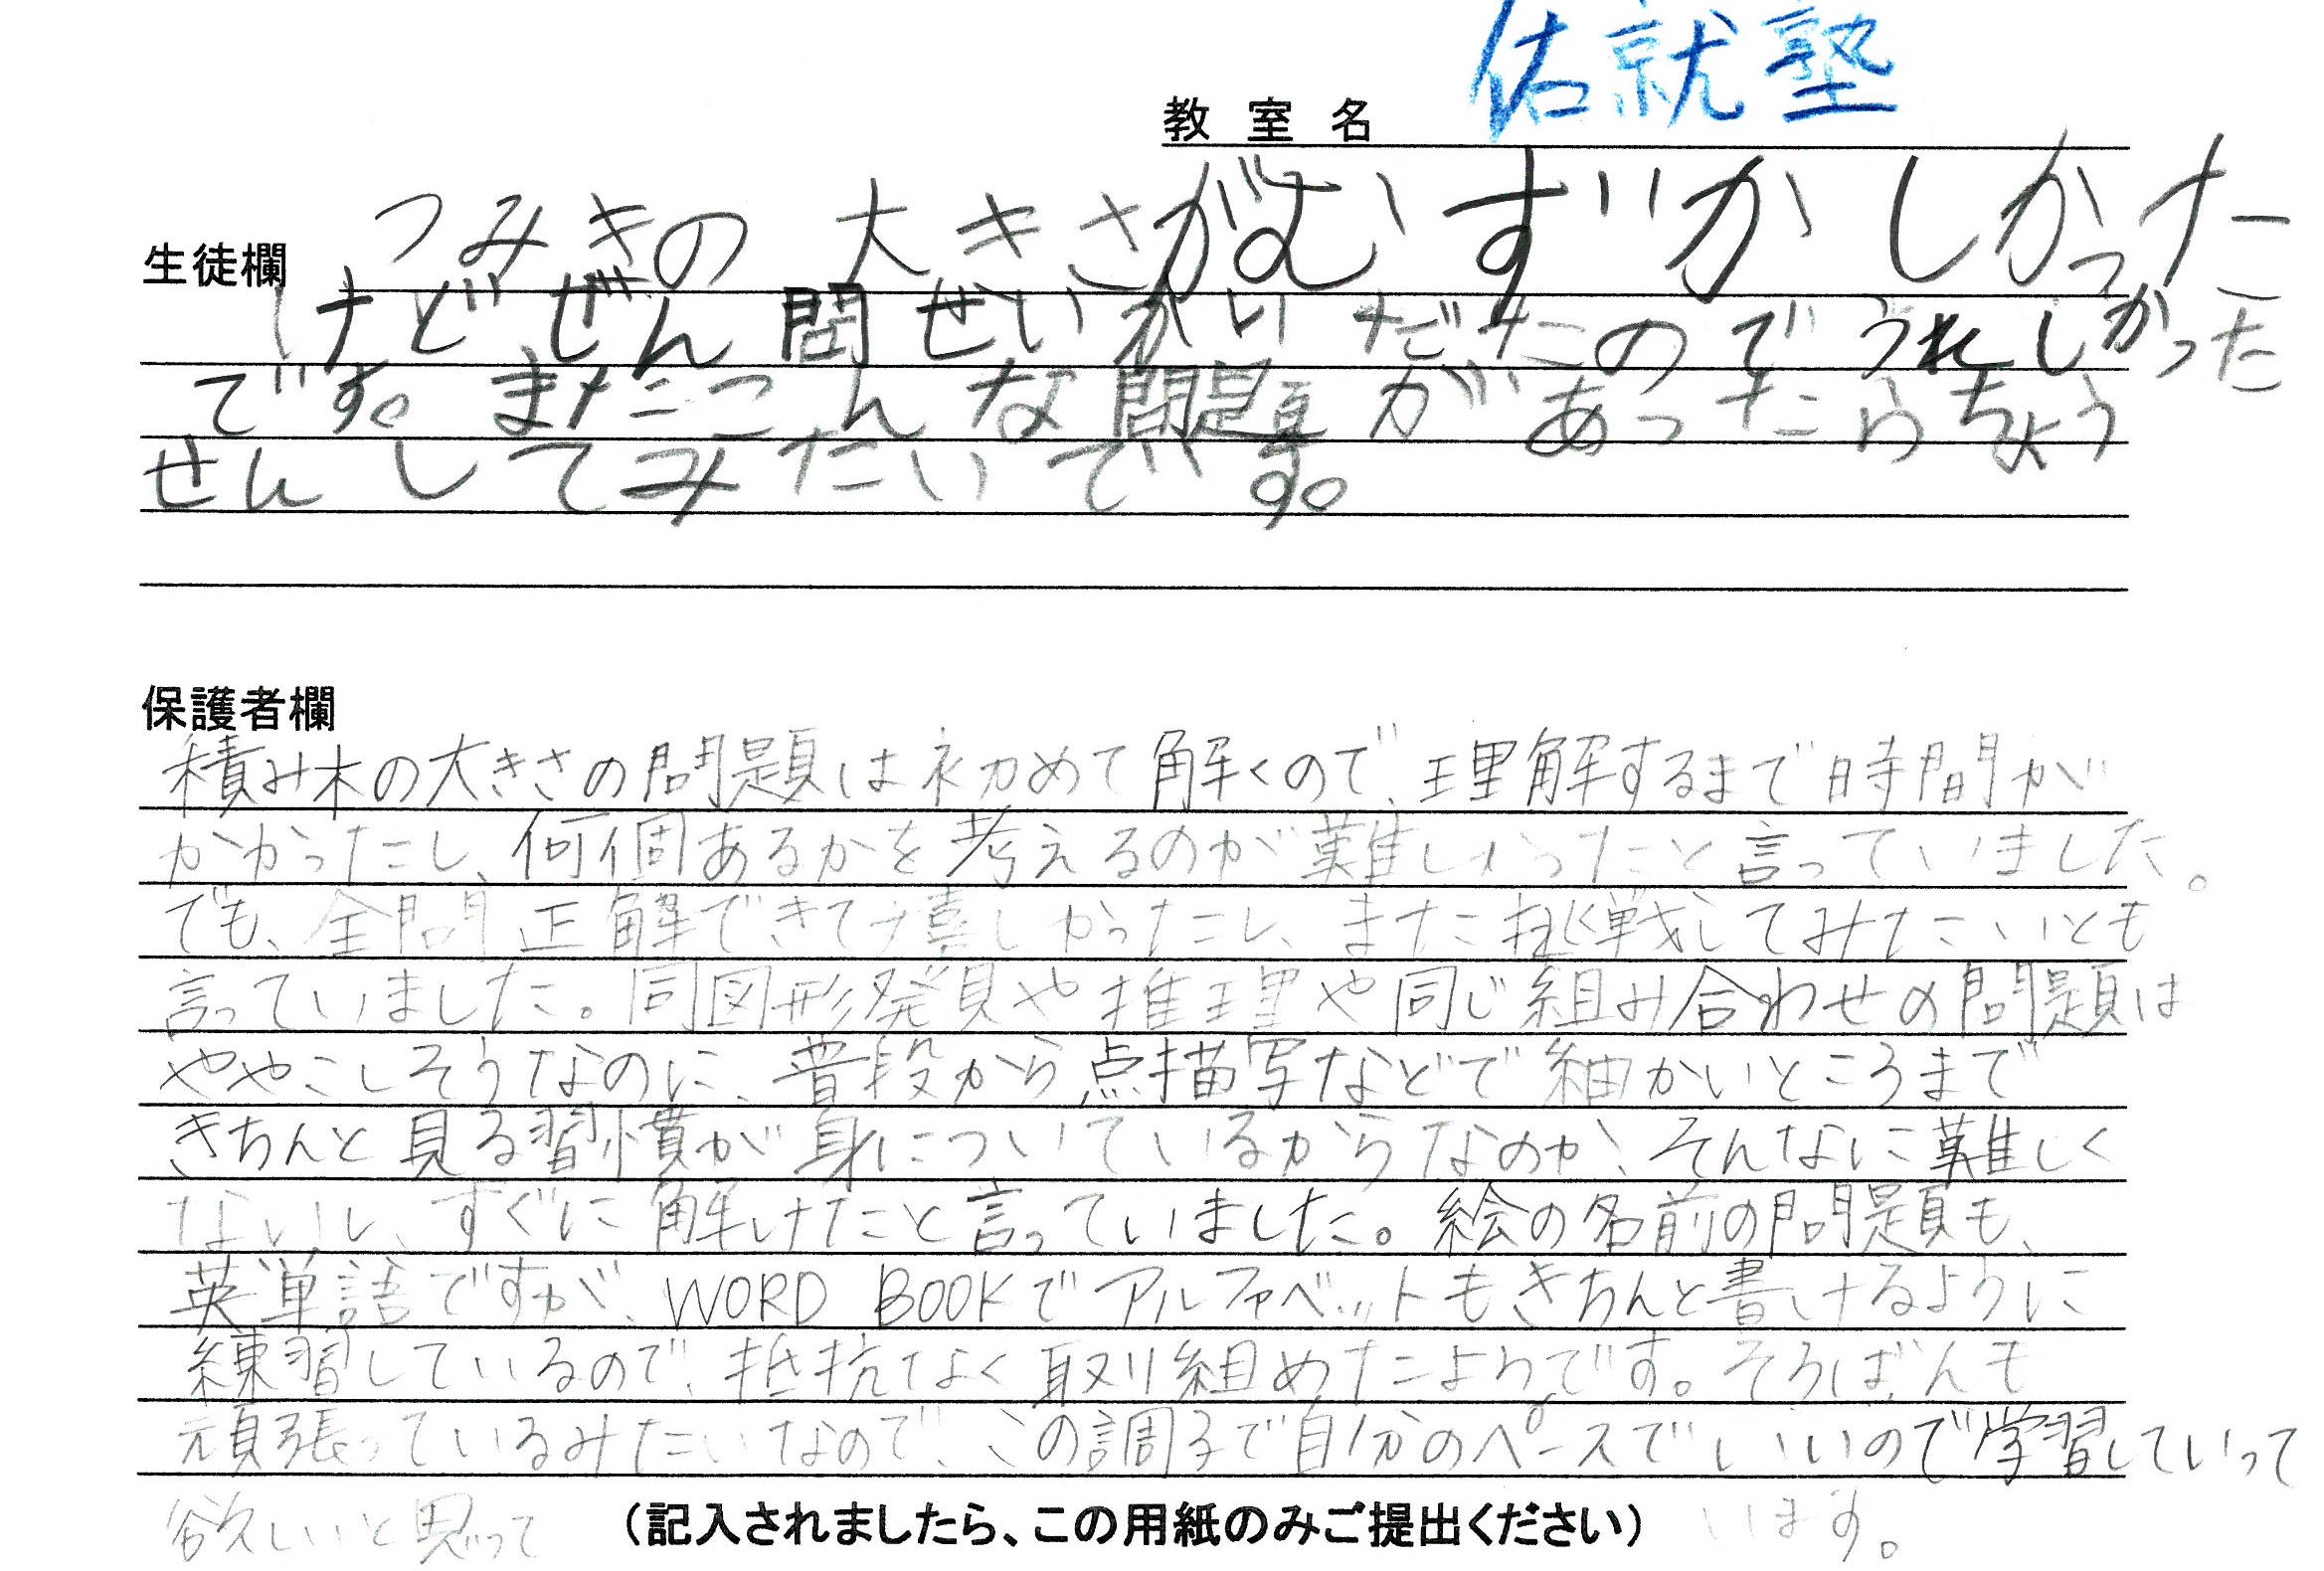 教室名 佑就塾
生徒欄 つみきの大きさがむずかしかった
けどぜん問せいかいだたのでうれしかった
です。またこんな問題があったらちょう
せんしてみたいです。
保護者欄
積み木の大きさの問題は初めて解くので、理解するまで時間が
かかったし、何個あるかを考えるのが難しかったと言っていました。
でも、全問正解できて嬉しかったし、また挑戦してみたいとも
言っていました。同図形発見や推理や同じ組み合わせの問題は
ややこしそうなのに、普段から点描写などで細かいところまで
きちんと見る習慣が身についているからなのか、そんなに難しく
ないし、すぐに解けたと言っていました。絵の名前の問題も、
英単語ですが、WORD BOOKでアルファベットもきちんと書けるように
練習しているので、抵抗なく取り組めたようです。そろばんも
頑張っているみたいなので、この調子で自分のペースでいいので学習していって
欲しいと思って (記入されましたら、この用紙のみご提出ください) います。